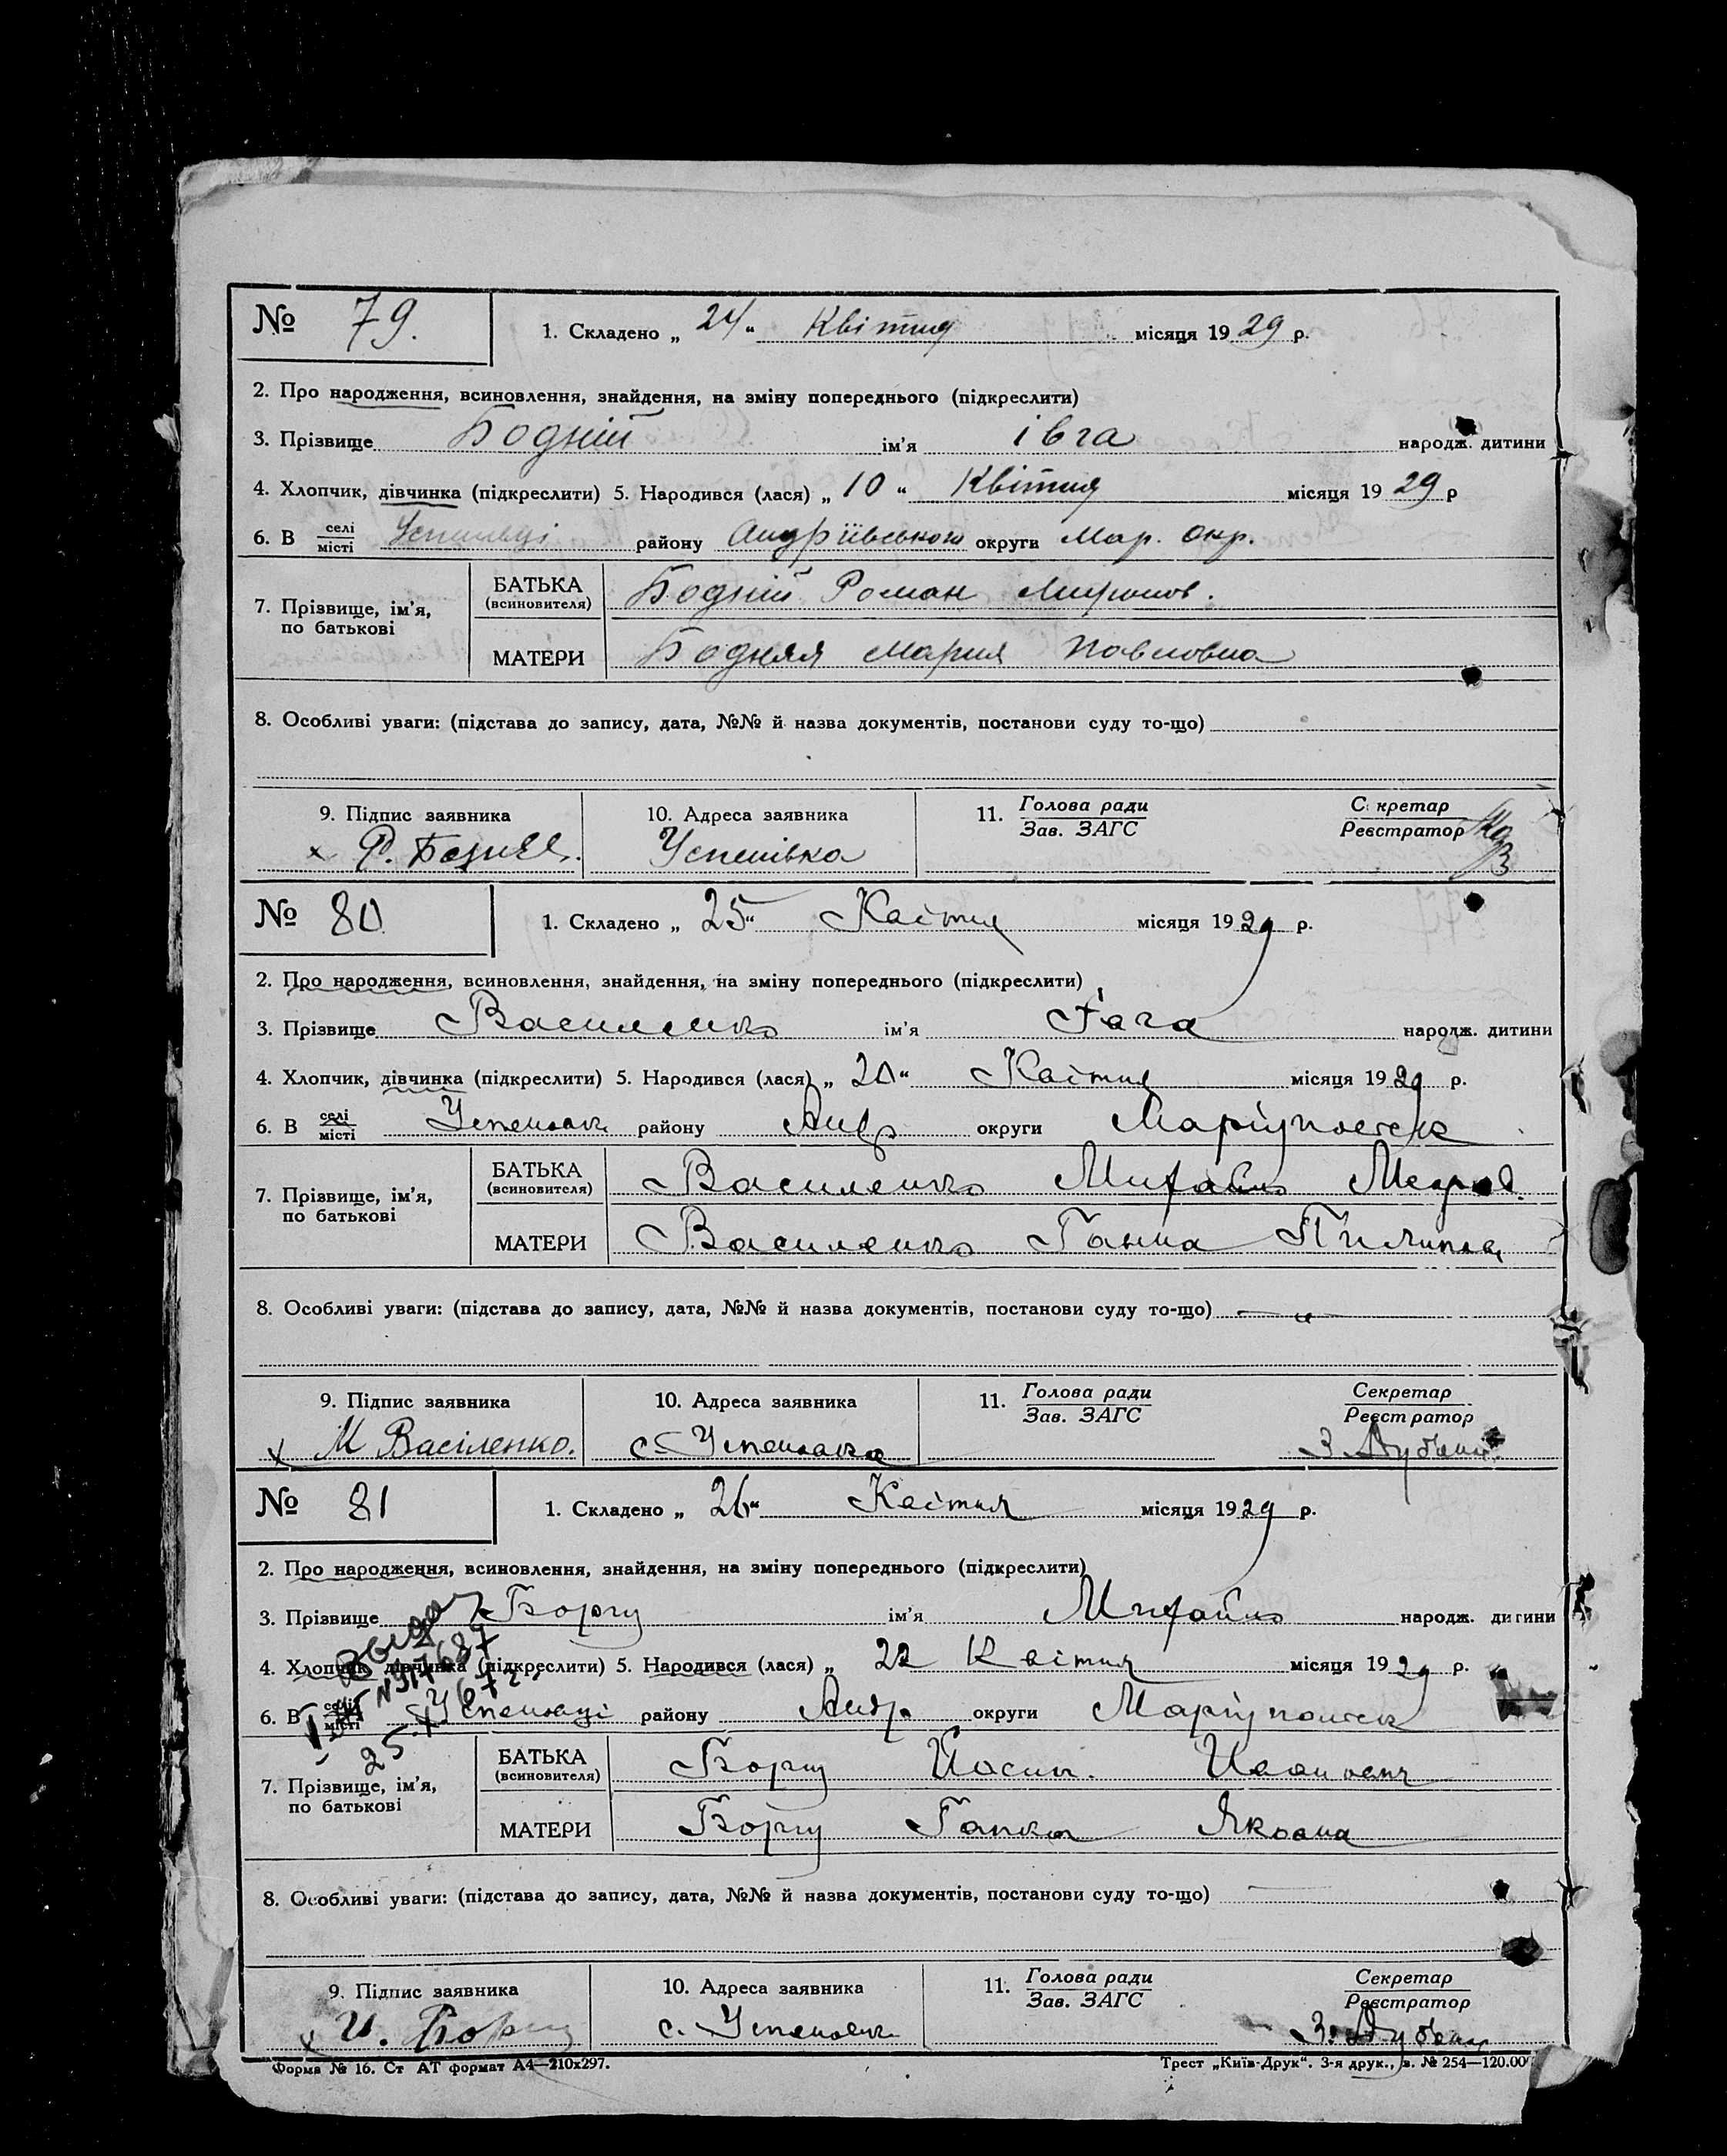 № 79. 1. Складено „ 24 “ Квітня місяця 1929 р.
2. Про народження, всиновлення, знайдення, на зміну попереднього (підкреслити)
3. Прізвище Бодній ім'я івга народж. дитини
4. Хлопчик, дівчинка (підкреслити) 5. Народився (лася) „ 10 “ Квітня місяця 1929 р
6. В селі місті Успенівці району Андріївського округи Мар. Окр.
7. Прізвище, ім'я, по батькові БАТЬКА (всиновителя) Бодній Роман Миронов.
МАТЕРИ Бодняя Мария Павловна
8. Особливі уваги: (підстава до запису, дата, №№ й назва документів, постанови суду то-що)
9. Підпис заявника 10. Адреса заявника 11. Голова ради Зав. ЗАГС С кретар Реєстратор
х Р. Успенівка
№ 80 1. Складено „ 25 “ Квітня місяця 1929 р.
2. Про народження, всиновлення, знайдення, на зміну попереднього (підкреслити)
3. Прізвище Василенко ім'я народж. дитини
4. Хлопчик, дівчинка (підкреслити) 5. Народився (лася) „ 20 “ Квітня місяця 1929 р.
6. В селі місті району Андр округи
7. Прізвище, ім'я, по батькові БАТЬКА (всиновителя) Василенко Михайло
МАТЕРИ Василенко Ганна
8. Особливі уваги: (підстава до запису, дата, №№ й назва документів, постанови суду то-що) — „
9. Підпис заявника 10. Адреса заявника 11. Голова ради Зав. ЗАГС Секретар Реєстратор
х М Василенко. с. Успеновка З.
№ 81 1. Складено „ 26 “ Квітня місяця 1929 р.
2. Про народження, всиновлення, знайдення, на зміну попереднього (підкреслити)
3. Прізвище Борщ ім'я Михайло народж. дитини
4. Хлопчик, дівчинка (підкреслити) 5. Народився (лася) „ 22 Квітня місяця 1929 р.
6. В селі місті Успеновці району Андр. округи
7. Прізвище, ім'я, по батькові БАТЬКА (всиновителя) Борщ Йосип.
МАТЕРИ Борщ Гапка Яковна
8. Особливі уваги: (підстава до запису, дата, №№ й назва документів, постанови суду то-що)
9. Підпис заявника 10. Адреса заявника 11. Голова ради Зав. ЗАГС Секретар Реєстратор
х И. Борщ с. З.
Форма № 16. Ст АТ формат А4—210х297. Трест „Київ-Друк“. 3-я друк., з. № 254—120.00